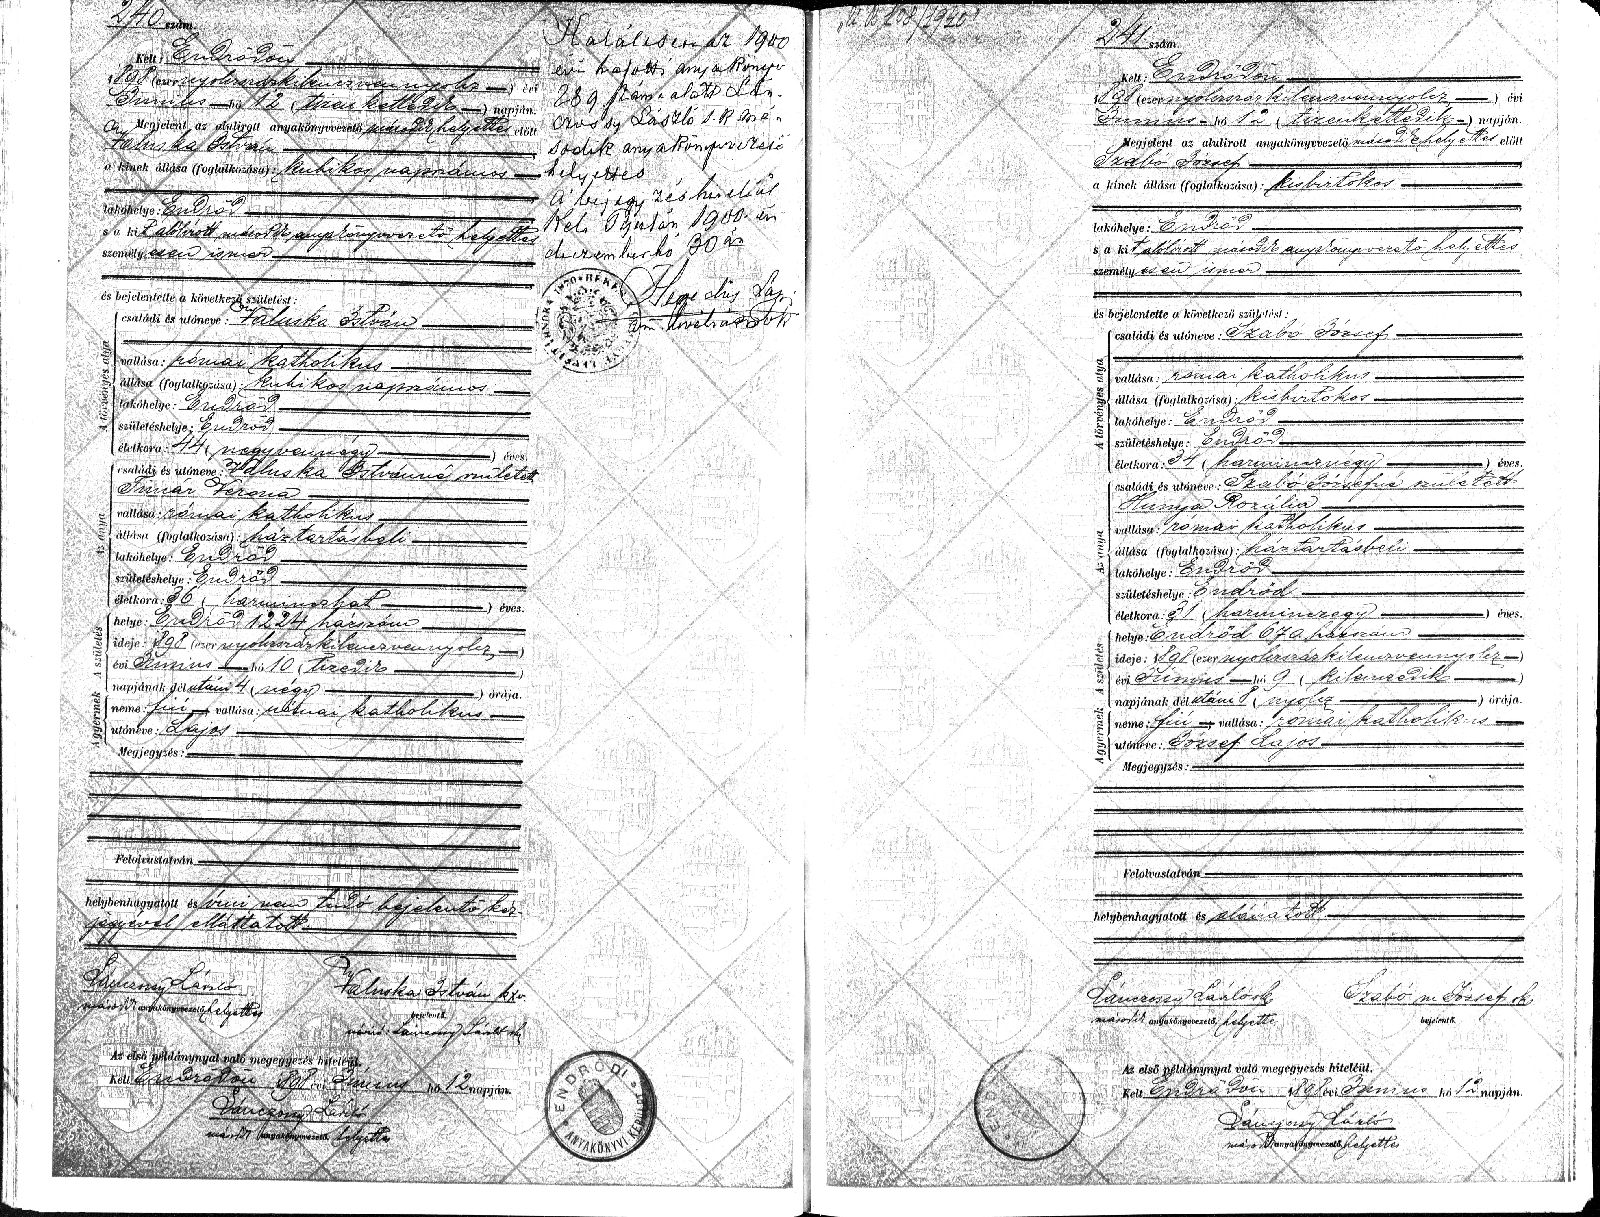 240 szám.
Kelt: Endrődön
1898 (ezernyolczszázkilenczvennyolcz) évi
Junius hó 12 (tizenkettedik) napján.
Megjelent az alulirott anyakönyvvezető másodikhelyettes előtt
Valuska István
a kinek állása (foglalkozása): kubikos napszámos
lakóhelye: Endrőd
s a kit alólirott második anyakönyvvezető helyettes
személyesen ismer
és bejelentette a következő születést:
A törvényes atyja
családi és utóneve: Valuska István
vallása: római katholikus
állása (foglalkozása): kubikos napszámos
lakóhelye: Endrőd
születéshelye: Endrőd
életkora: 44 (negyvennégy) éves.
Az anya
családi és utóneve: Valuska Istvánné született
Timár Verona
vallása: római katholikus
állása (foglalkozása): háztartásbeli
lakóhelye: Endrőd
születéshelye: Endrőd
életkora: 36 (harminczhat) éves.
A születés
helye: Endrőd 1224 házszám
ideje: 1898 (ezernyolczszázkilenczvennyolcz)
évi Junius hó 10 (tizedik)
napjának délutáni 4 (négy) órája.
A gyermek
neme: fiú vallása: római katholikus
utóneve: Lajos
Megjegyzés:
Felolvastatván
helybenhagyatott és írni nem tudó bejelentő kéz-
jegyével elláttatott
Lánczossy László
második anyakönyvvezető helyettes
Valuska István kzv.
bejelentő.
Lánczossy László sk
Az első példánynyal való megegyezés hiteléül.
Kelt Endrődön 1898 évi Junius hó 12 napján.
Lánczossy László
második anyakönyvvezető helyettes
ENDRŐDI
ANYAKÖNYVI KERÜLET
Halálesen az 1900
évi halotti anyakönyv
289 szám alatt Lán-
czossy László s.k. má-
sodik anyakönyvvezető
helyettes
A bejegyzés hiteléül
Kelt Gyulán, 1900. évi
deczember hó 30 án
241 szám.
Kelt: Endrődön
1898 (ezernyolczszázkilenczvennyolcz) évi
Junius hó 12 (tizenkettedik) napján.
Megjelent az alulirott anyakönyvvezető második helyettes előtt
Szabó József
a kinek állása (foglalkozása): kisbirtokos
lakóhelye: Endrőd
s a kit alólirott második anyakönyvvezető helyettes
személyesen ismer
és bejelentette a következő születést:
A törvényes atyja
családi és utóneve: Szabó József
vallása: római katholikus
állása (foglalkozása): kisbirtokos
lakóhelye: Endrőd
születéshelye: Endrőd
életkora: 34 (harmincznégy) éves.
Az anya
családi és utóneve: Szabó Józsefné született
Hunya Rozália
vallása: római katholikus
állása (foglalkozása): háztartásbeli
lakóhelye: Endrőd
születéshelye: Endrőd
életkora: 31 (harminczegy) éves.
A születés
helye: Endrőd 670 házszám
ideje: 1898 (ezernyolczszázkilenczvennyolcz)
évi Junius hó 9 (kilenczedik)
napjának délutáni 8 (nyolcz) órája.
A gyermek
neme: fiú vallása: római katholikus
utóneve: József Lajos
Megjegyzés:
Felolvastatván
helybenhagyatott és aláiratott
Lánczossy László sk
második anyakönyvvezető, helyettes
Szabó m József sk
bejelentő.
Az első példánynyal való megegyezés hiteléül.
Kelt Endrődön 1898 évi Junius hó 12 napján.
Lánczossy László
második anyakönyvvezető helyettes